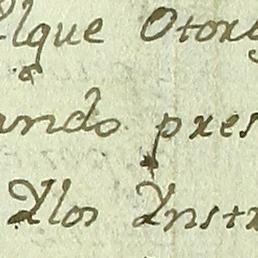 elque Otorg
ando pres
Ylos Ynstr